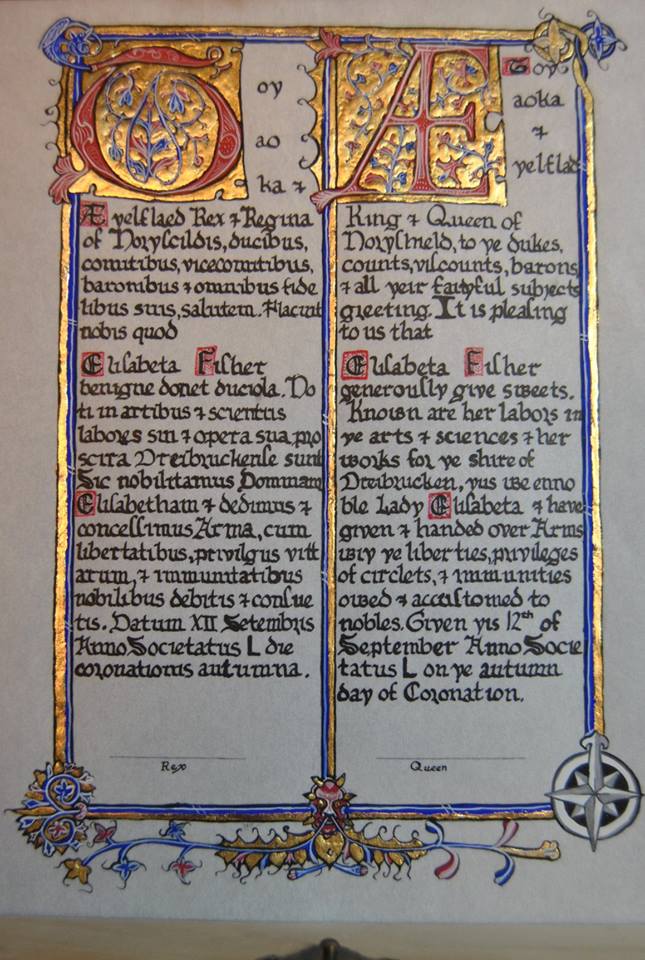 T oy
ao
ka ⁊
Æ yelflaed Rex ⁊ Regina
of Noryscildis, ducibus,
comitibus, vicecomitibus,
baronibus ⁊ omnibus fide
libus suis, salutem. Placint
nobis quod
Elisabeta Fisher
benigne donet duciola. No
ti in artibus ⁊ scientiis
labores sin ⁊ opera sua pro
scira Dreibruckense sunt
Sic nobilitamus Dominam
Elisabetham ⁊ dedimus ⁊
concessimus Arma, cum
libertatibus, privilgus vitt
arum, ⁊ immunitatibus
nobilibus debitis ⁊ consue
tis. Datum XII Setembris
Anno Societatus L die
coronationis autumna.
Rex
Æ Toy
aoka
⁊
yelflad
King ⁊ Queen of
Noryshield, to ye dukes,
counts, viscounts, barons,
⁊ all yeir faiyful subjects
greeting. It is pleasing
to us that
Elisabeta Fisher
generously give sweets.
Known are her labors in
ye arts ⁊ sciences ⁊ her
works for ye shire of
Dreibrucken, yus we enno
ble Lady Elisabeta ⁊ have
given ⁊ handed over Arms
wiy ye liberties, privileges
of circlets, ⁊ immunities
owed ⁊ accustomed to
nobles. Given yis 12th of
September Anno Socie
tatus L on ye autumn
day of Coronation.
Queen